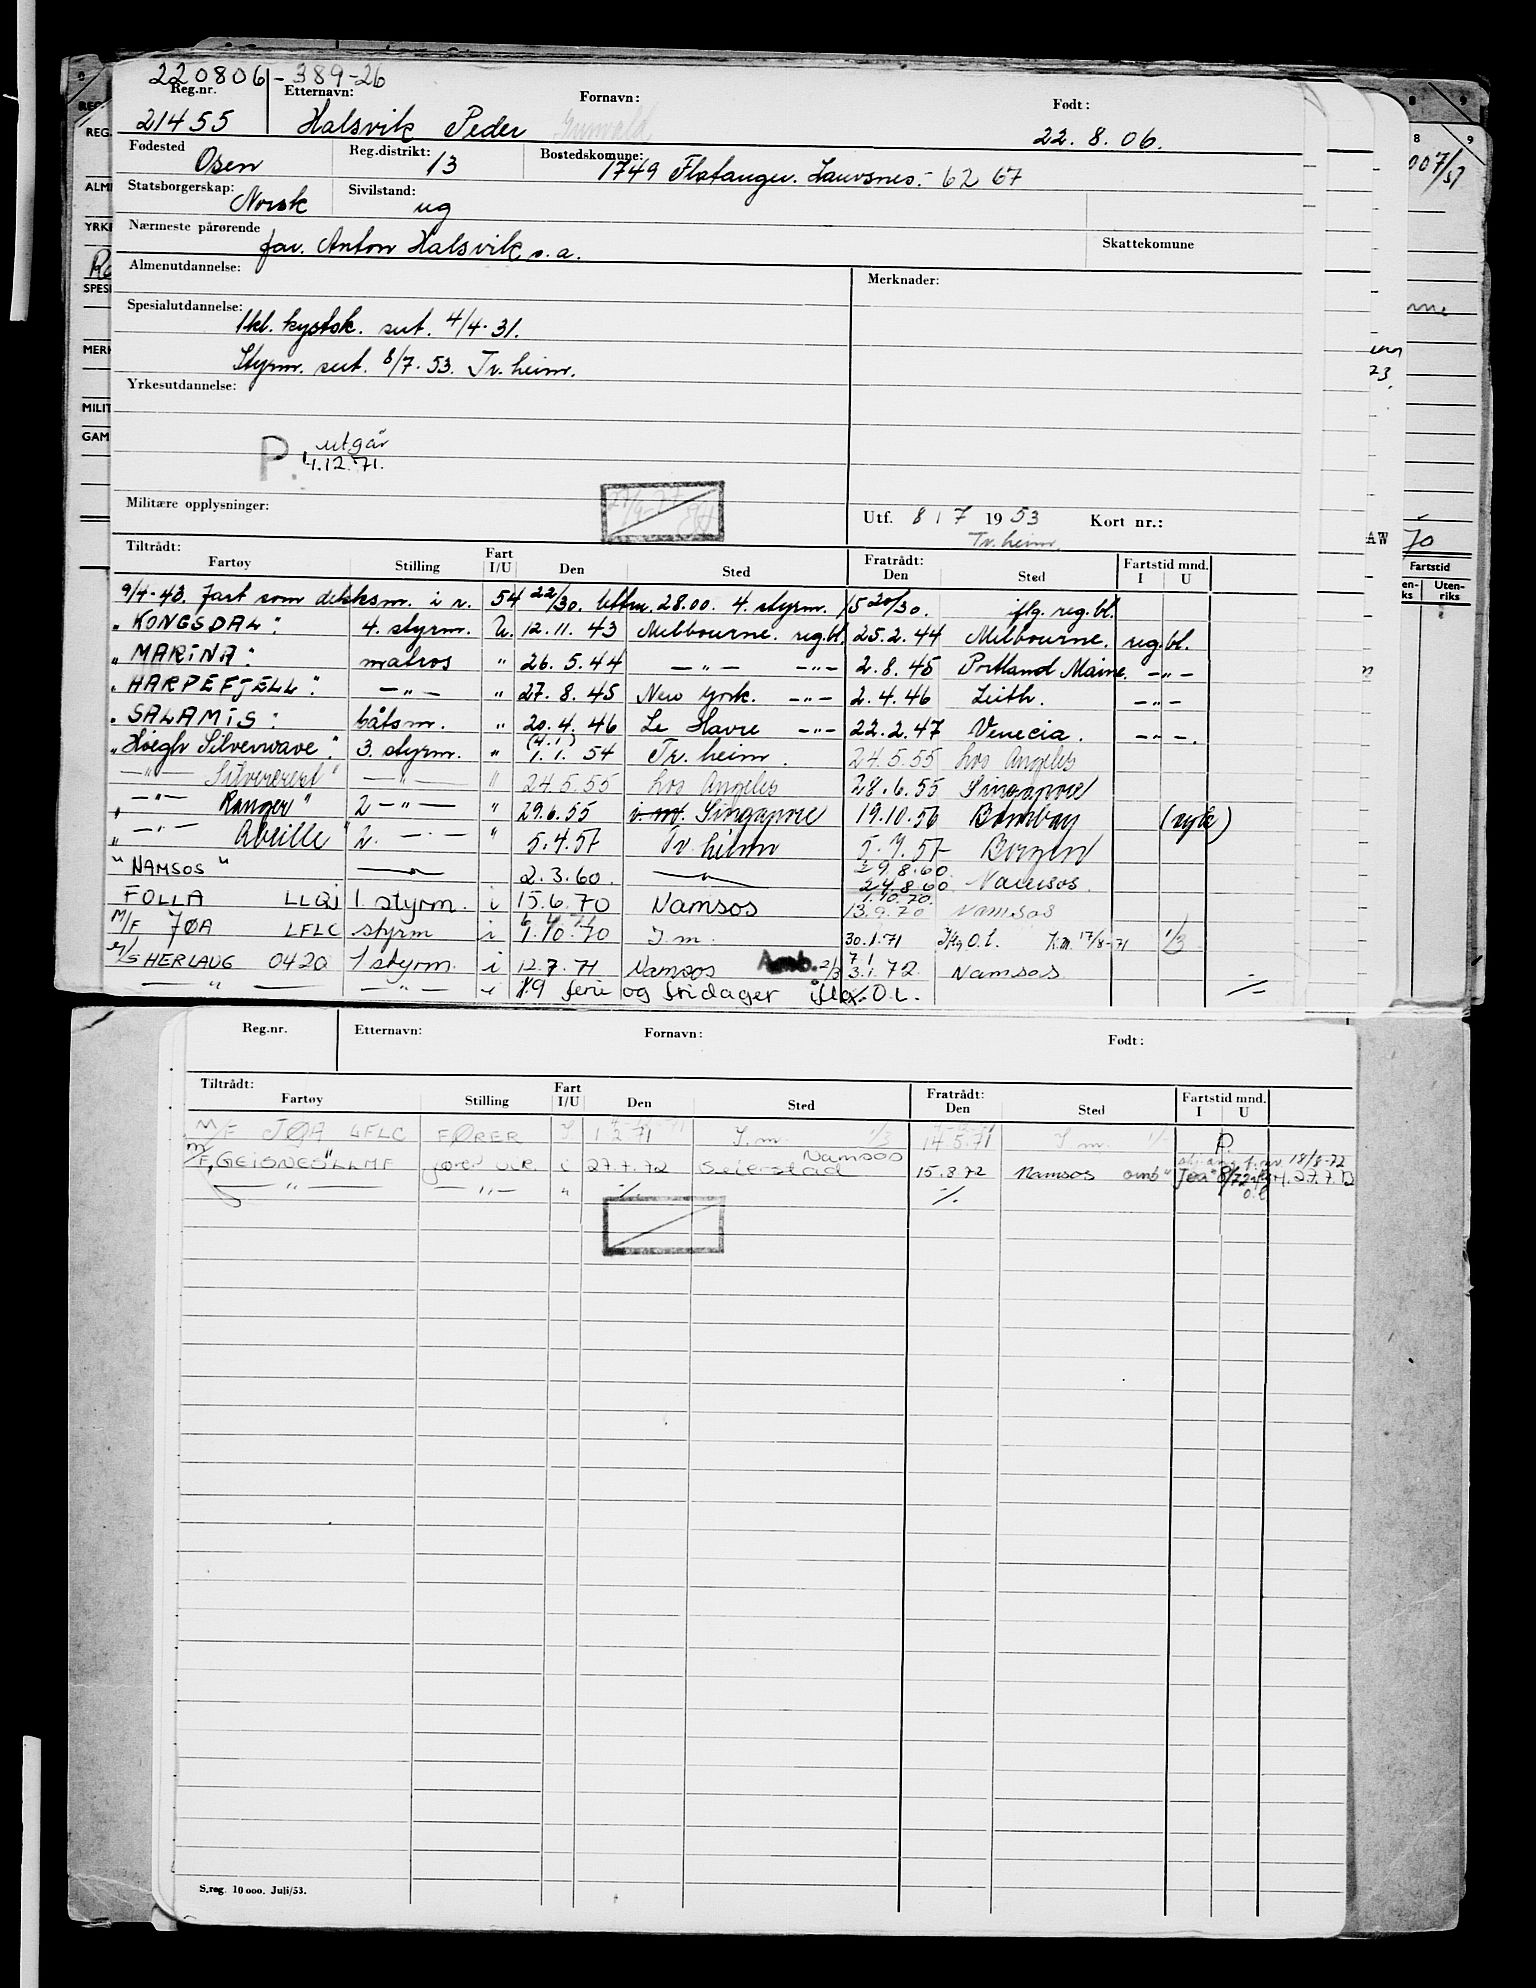 220806-389-26
Reg.nr. Etternavn: Fornavn: Født:
21455 Halsvik Peder Gunvald 22.8.06.
Fødested Reg.distrikt: Bostedskomune:
Osen 13 1749 Flatanger. Lauvsnes. 62 67
Statsborgerskap: Sivilstand:
Norsk ug
Nærmeste pårørende Skattekomune
far. Anton Halsvik s.a.
Almenutdannelse: Merknader:
Spesialutdannelse:
1kl. kystsk. sert. 4/4-31.
Styrm. sert. 8/7.53. Tr.heim.
Yrkesutdannelse:
P. utgår
4.12.71.
Militære opplysninger:
Utf. 8 / 7 1953 Kort nr.:
Tr.heim.
Tiltrådt: Fratrådt:
Fartøy Stilling Fart I/U Den Sted Den Sted Fartstid mnd. I U
9/4-43. Fart som deksksm. i r. 54 22/30. 28.00. 4. styrm. 15 20/30. iflg. reg.bl.
"KONGSDAL". 4. styrm. U. 12.11.43 Melbourne. reg.bl. 25.2.44 Melbourne. reg.bl.
"MARINA". matros " 26.5.44 —"— —"— 2.8.45 Portland Maine. —"—
"HARPEFJELL". —"— " 27.8.45 New York. —"— 2.4.46 Leith. —"—
"SALAMIS". båtsm. " 20.4.46 Le Havre —"— 22.2.47 Venecia. —"—.
"Høegh Silverwave". 3. styrm. " (4.1) 1.1.54 Tr.heim. 24.5.55 Los Angeles
—"— Silvercrest" —"— " 24.5.55 Los Angeles 28.6.55 Singapore
"—"— Ranger" 2—"— " 29.6.55 Singapore 19.10.56 Bombay (syk)
"—"— Abeille" 2. —"— " 5.4.57 Tr.heim 5.7.57 Bergen
"NAMSOS" 2.3.60. 29.8.60 24.8.60 Namsos.
FOLLA LLQJ 1. styrm. i 15.6.70 Namsos 1.10.70. 13.9.70 Namsos
M/F JØA LFLC styrm i 1.10.70 I.m. 30.1.71 Iflg O.l. K.m. 17/8-71 1/3
HERLAUG 0420 1 styrm. i 12.7.71 Namsos Amb. 2/3 7 1 3.1.72 Namsos
—"— —"— i 1.9 ferie og fridager iflg. O.l. ./.
Reg.nr. Etternavn: Fornavn: Født:
Tiltrådt: Fratrådt:
Fartøy Stilling Fart I/U Den Sted Den Sted Fartstid mnd. I U
M/F JØA LFLC FØRER I 1.2.71 I.m. 1/3 14.5.71 I.m. P.
M/F "GEISNES" LLMF fører i 27.7.72 Namsos Seierstad 15.8.72 Namsos omb "Jøa" 18/8-72
—"— —"— " ./. ./.
S.reg. 10 000. Juli/53.